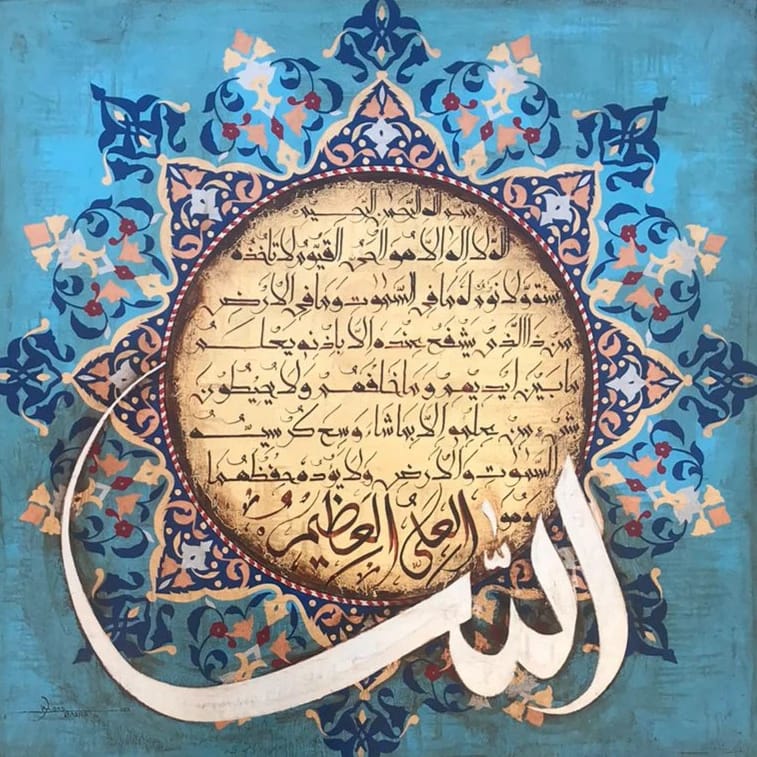 بسم الله الرحمن الرحيم
الله لا اله الا هو الحي القيوم لا تاخذه
سنة ولا نوم له ما في السموت وما في الارض
من ذا الذي يشفع عنده الا باذنه يعلم
ما بين ايديهم وما خلفهم ولا يحيطون
بشيء من علمه الا بما شاء وسع كرسيه
السموت والارض ولا يوده حفظهما
وهو العلي العظيم
الله